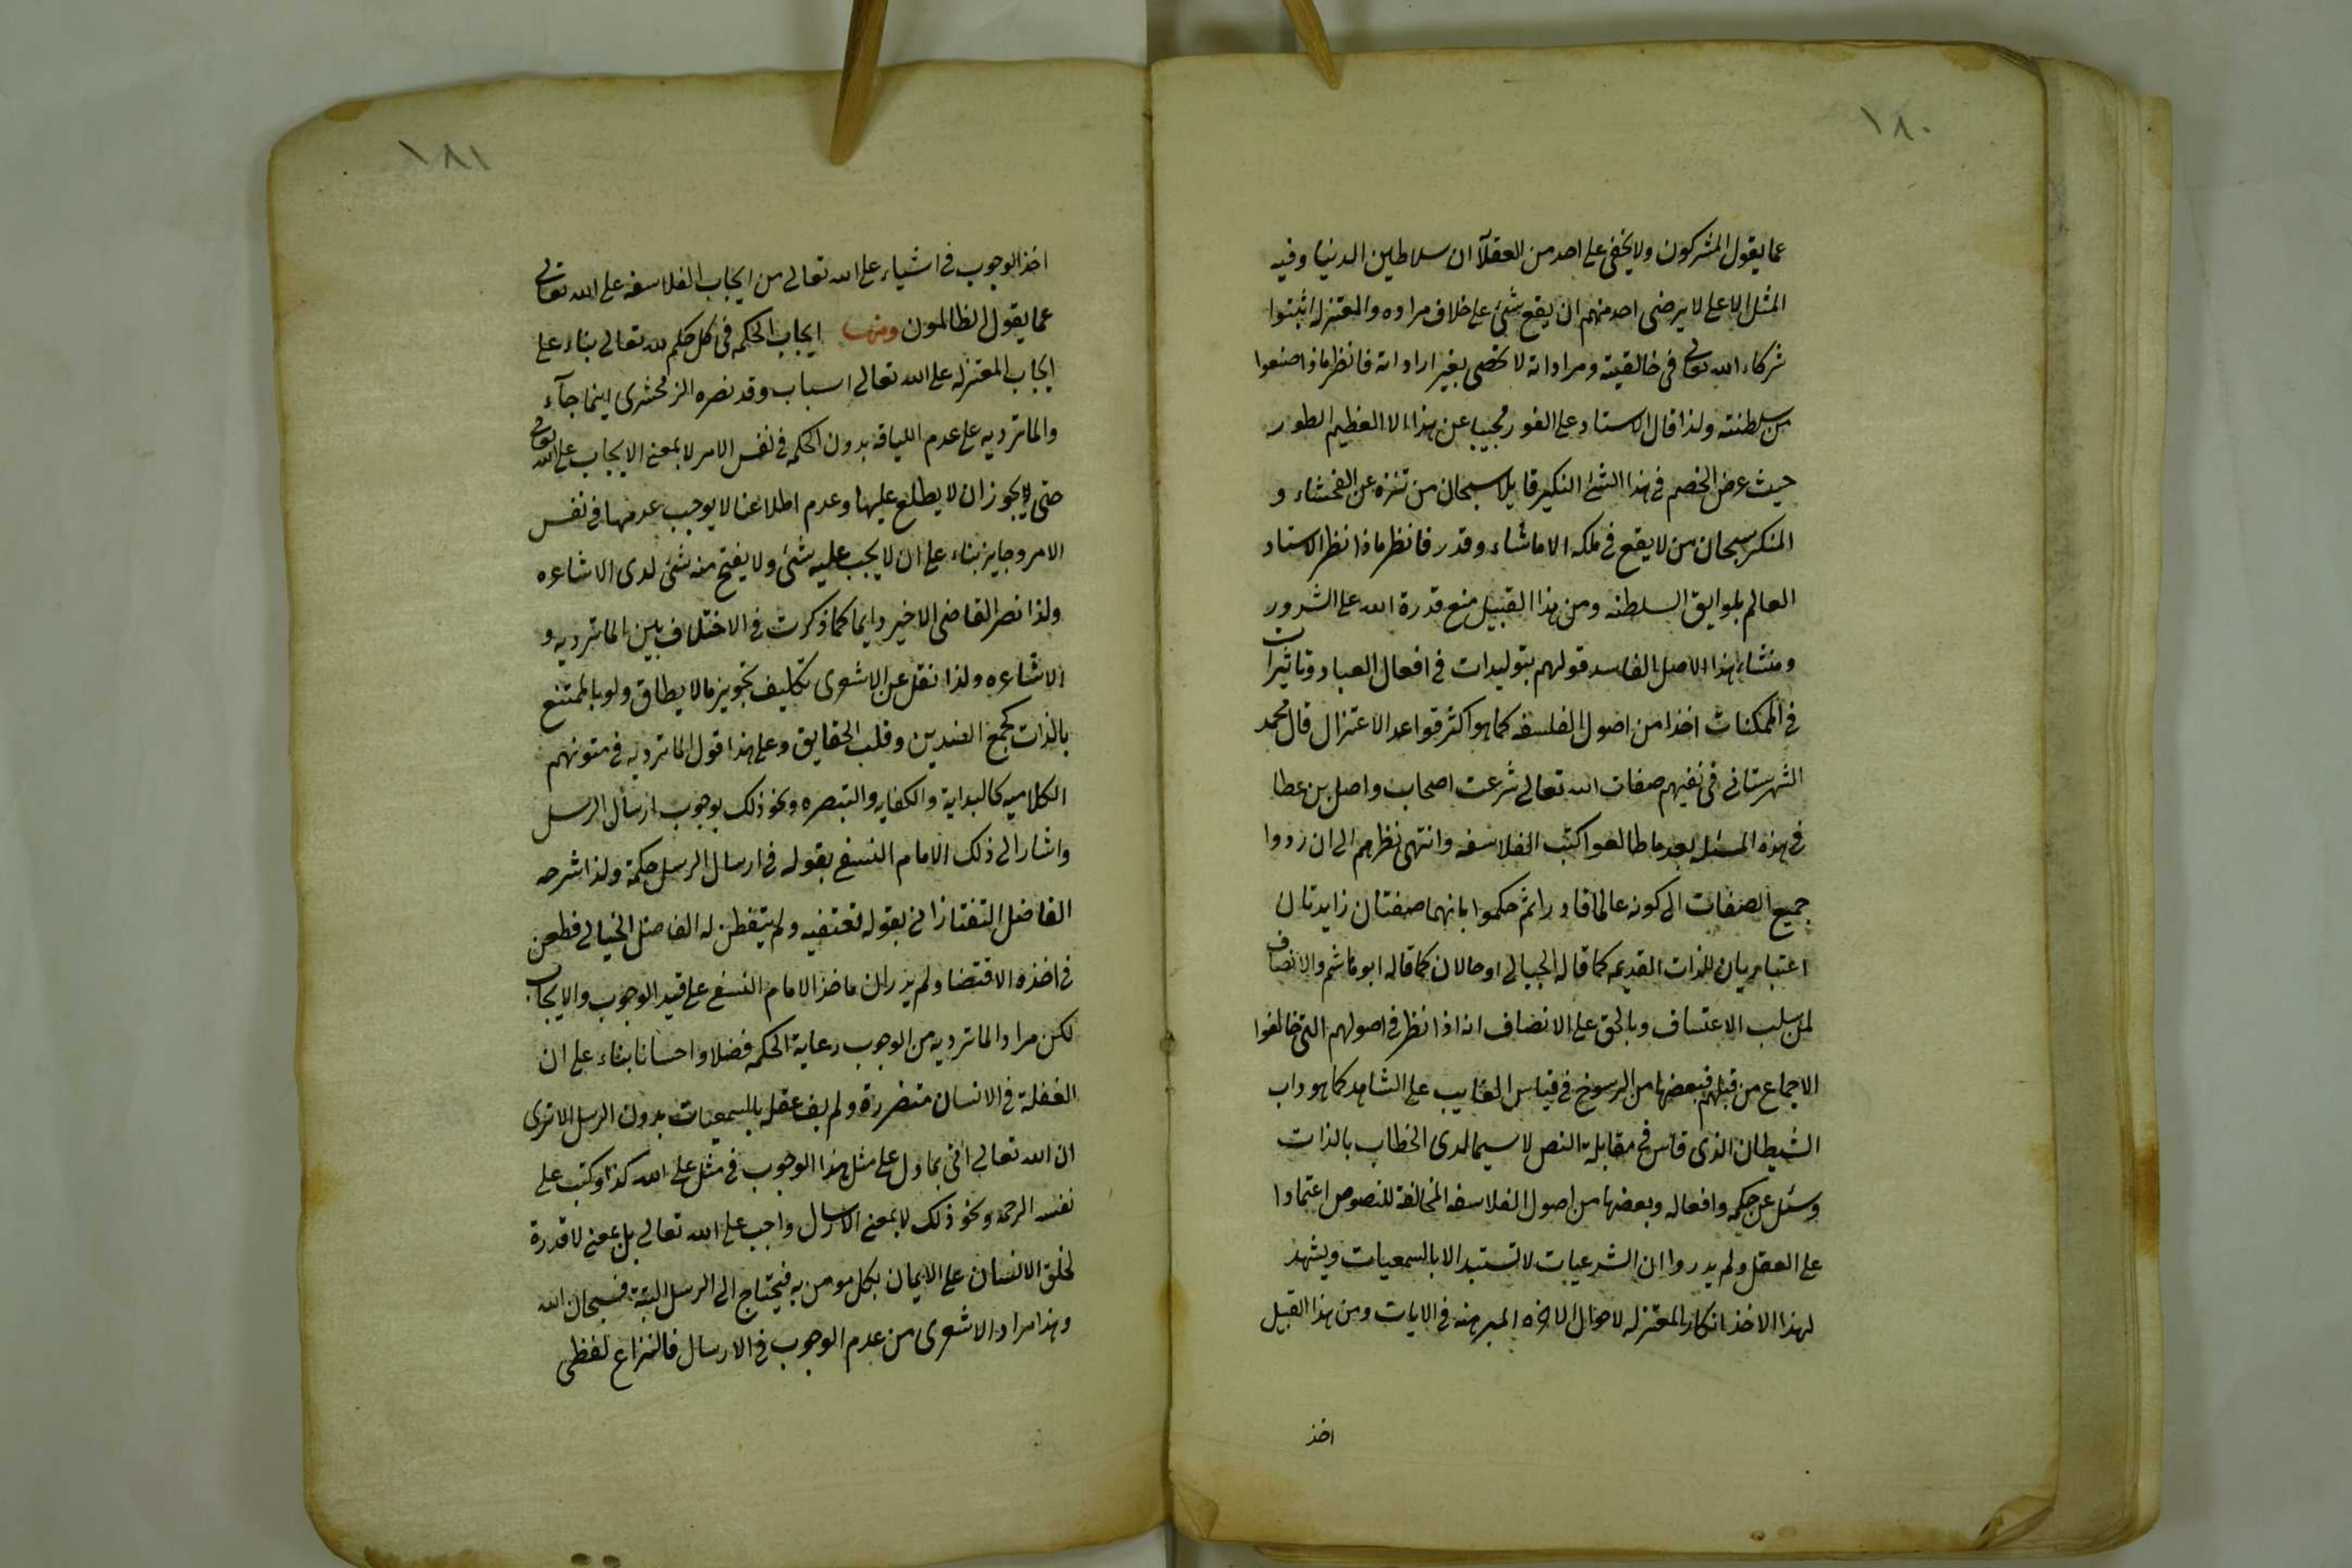 ١٨٠
عما يقول المشركون ولا يخفى على احد من العقلآ ان سلاطين الدنيا وفيه
المثل الاعلى لا يرضى احد منهم ان يقع شئ على خلاف مراده والمعتزله اثبتوا
شركاء الله تعالى فى خالقيته ومراداته لا تحصى بغير اراداته فانظر ماذا صنعوا
من سلطنته ولذا قال الاستاد على الفور مجيبا عن هذا الا العظيم الطور
حيث عرض الخصم فى هذا الشئ النكير قايلا سبحان من تنزه عن الفحشاء و
المنكر سبحان من لا يقع فى ملكه الا ماشاء وقدر فانظر ماذا نظر الاستاد
العالم بلوايق السلطنه ومن هذا القبيل منع قدرة الله على الشرور
ومنشاء هذا الاصل الفاسد قولهم بتوليدات فى افعال العباد وتاثيرات
فى الممكنات اخذا من اصول الفلسفه كما هو اكثر قواعد الاعتزال قال محمد
الشهرستانى فى نفيهم صفات الله تعالى شرعت اصحاب واصل بن عطا
فى هذه المسئله بعد ما طالعوا كتب الفلاسفه وانتهى نظرهم الى ان ردوا
جميع الصفات الى كونه عالما قادرا ثم حكموا بانهما صفتان زايدتان
اعتباريان للذات القديمه كما قاله الجبالى او حالان كما قاله ابو هاشم والانصاف
لمن سلب الاعتساف وبالحق على الانصاف انه اذا نظر فى اصولهم التى خالفوا
الاجماع من قبلهم فبعضها من الرسوخ فى قياس الغايب على الشاهد كما هو داب
الشيطان الذى قاس فى مقابلة النص لا سيما لدى الخطاب بالذات
وسئل عن حكمه وافعاله وبعضها من اصول الفلاسفه المخالفة للنصوص اعتمادا
على العقل ولم يدروا ان الشرعيات لا تستبد الا بالسمعيات ويشهد
لهذا الاخذ انكار المعتزله لاحوال الاخره المبرهنه فى الايات ومن هذا القبيل
اخذ
١٨١
اخذ الوجوب فى اشياء على الله تعالى من ايجاب الفلاسفه على الله تعالى
عما يقول الظالمون ومنها ايجاب الحكمه فى كل حكم لله تعالى بناء على
ايجاب المعتزله على الله تعالى اسباب وقد نصره الزمخشرى اينما جآء
والماترديه على عدم اللياقه بدون الحكمه فى نفس الامر لا بمعنى الايجاب على الله تعالى
حتى لا يجوز ان لا يطلع عليها وعدم اطلاعنا لا يوجب عدمها فى نفس
الامر وجايز بناء على ان لا يجب عليه شئ ولا يقبح منه شئ لدى الاشاعره
ولذا نصر القاضى الاخير دايما كما ذكرت فى الاختلاف بين الماترديه و
الاشاعره ولذا نقل عن الاشعرى تكليف تجويز مالا يطاق ولو بالممتنع
بالذات كجمع الضدين وقلب الحقايق وعلى هذا قول الماترديه فى متونهم
الكلاميه كالبداية والكفايه والتبصره ونحو ذلك بوجوب ارسال الرسل
واشار الى ذلك الامام النسفى بقوله فى ارسال الرسل حكمة ولذا شرحه
الفاضل التفتازانى بقوله تقتضيه ولم يتفطن له الفاضل الخيالى فطعن
فى اخذه الاقتضا ولم يدر ان ماخذ الامام النسفى على قيد الوجوب والايجاب
لكن مراد الماترديه من الوجوب رعاية الحكمه فضلا واحسانا بناء على ان
الغفلة فى الانسان متضررة ولم يف عقله بالسمعيات بدون الرسل الا ترى
ان الله تعالى اتى بما دل على مثل هذا الوجوب فى مثل على الله كذا وكتب على
نفسه الرحمه ونحو ذلك لا بمعنى الارسال واجب على الله تعالى بل بمعنى لا قدرة
لخلق الانسان على الايمان بكل مومن به فيحتاج الى الرسل البتة فسبحان الله
وهذا مراد الاشعرى من عدم الوجوب فى الارسال فالنزاع لفظى